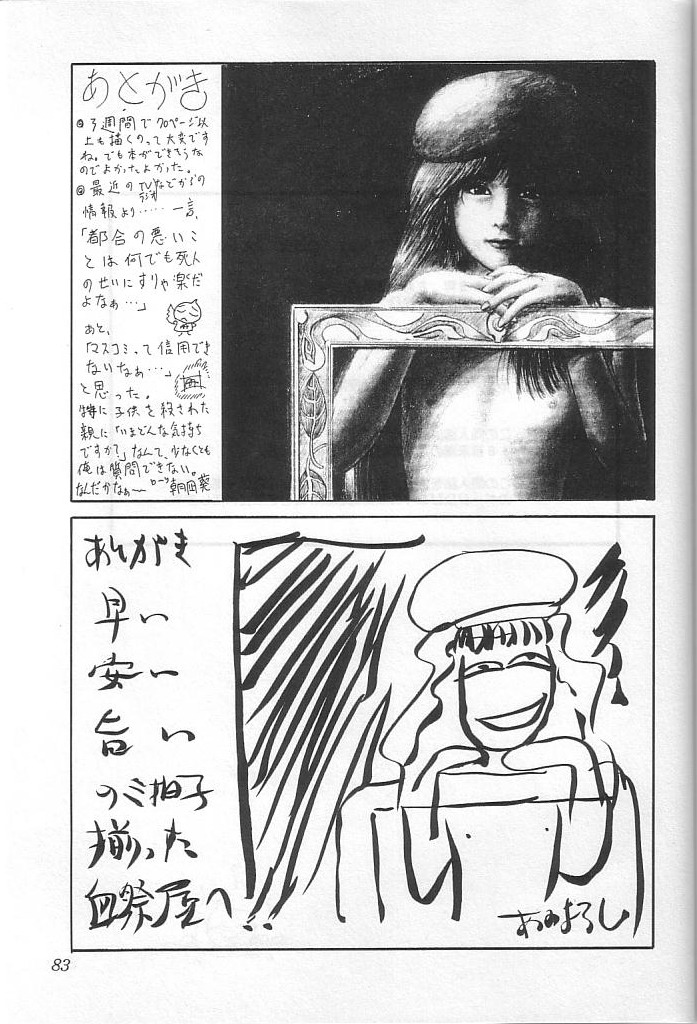 あとがき
◎3週間で70ページ以
上も描くのって大変です
ね。でも本ができそうな
のでよかったよかった。
◎最近のTVなどからの
ラジオ
情報より……一言、
「都合の悪いこ
とは何でも死人
のせいにすりゃ楽だ
よなぁ…」
あと、
「マスコミって信用でき
ないなぁ…」
と思った。
特に子供を殺された
親に「いまどんな気持ち
ですか？」なんて、少なくとも
俺は質問できない。
なんだかなぁ〜
あとがき
早い
安い
旨い
の三拍子
揃った
血祭屋へ
83